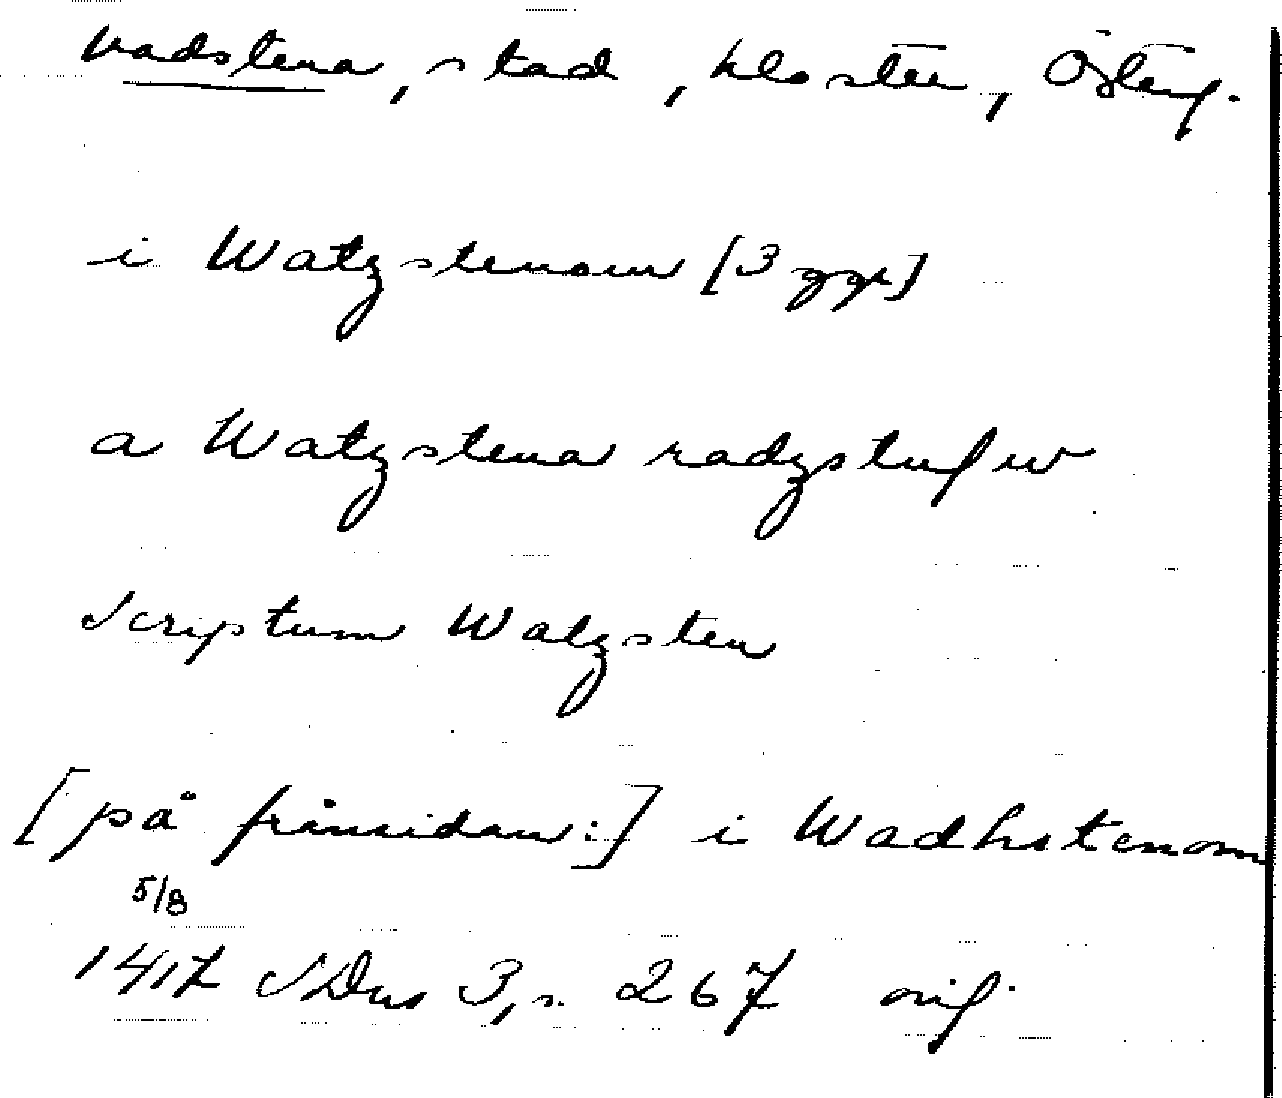 Vadstena, stad, kloster, Österg.
i Watzstenom [3 ggr]
a Watzstena radzstufw
Scriptum Watzsten
[på frånsidan:] i Wadhstenom
5/8
1417 SDns 3, s. 267 orig.